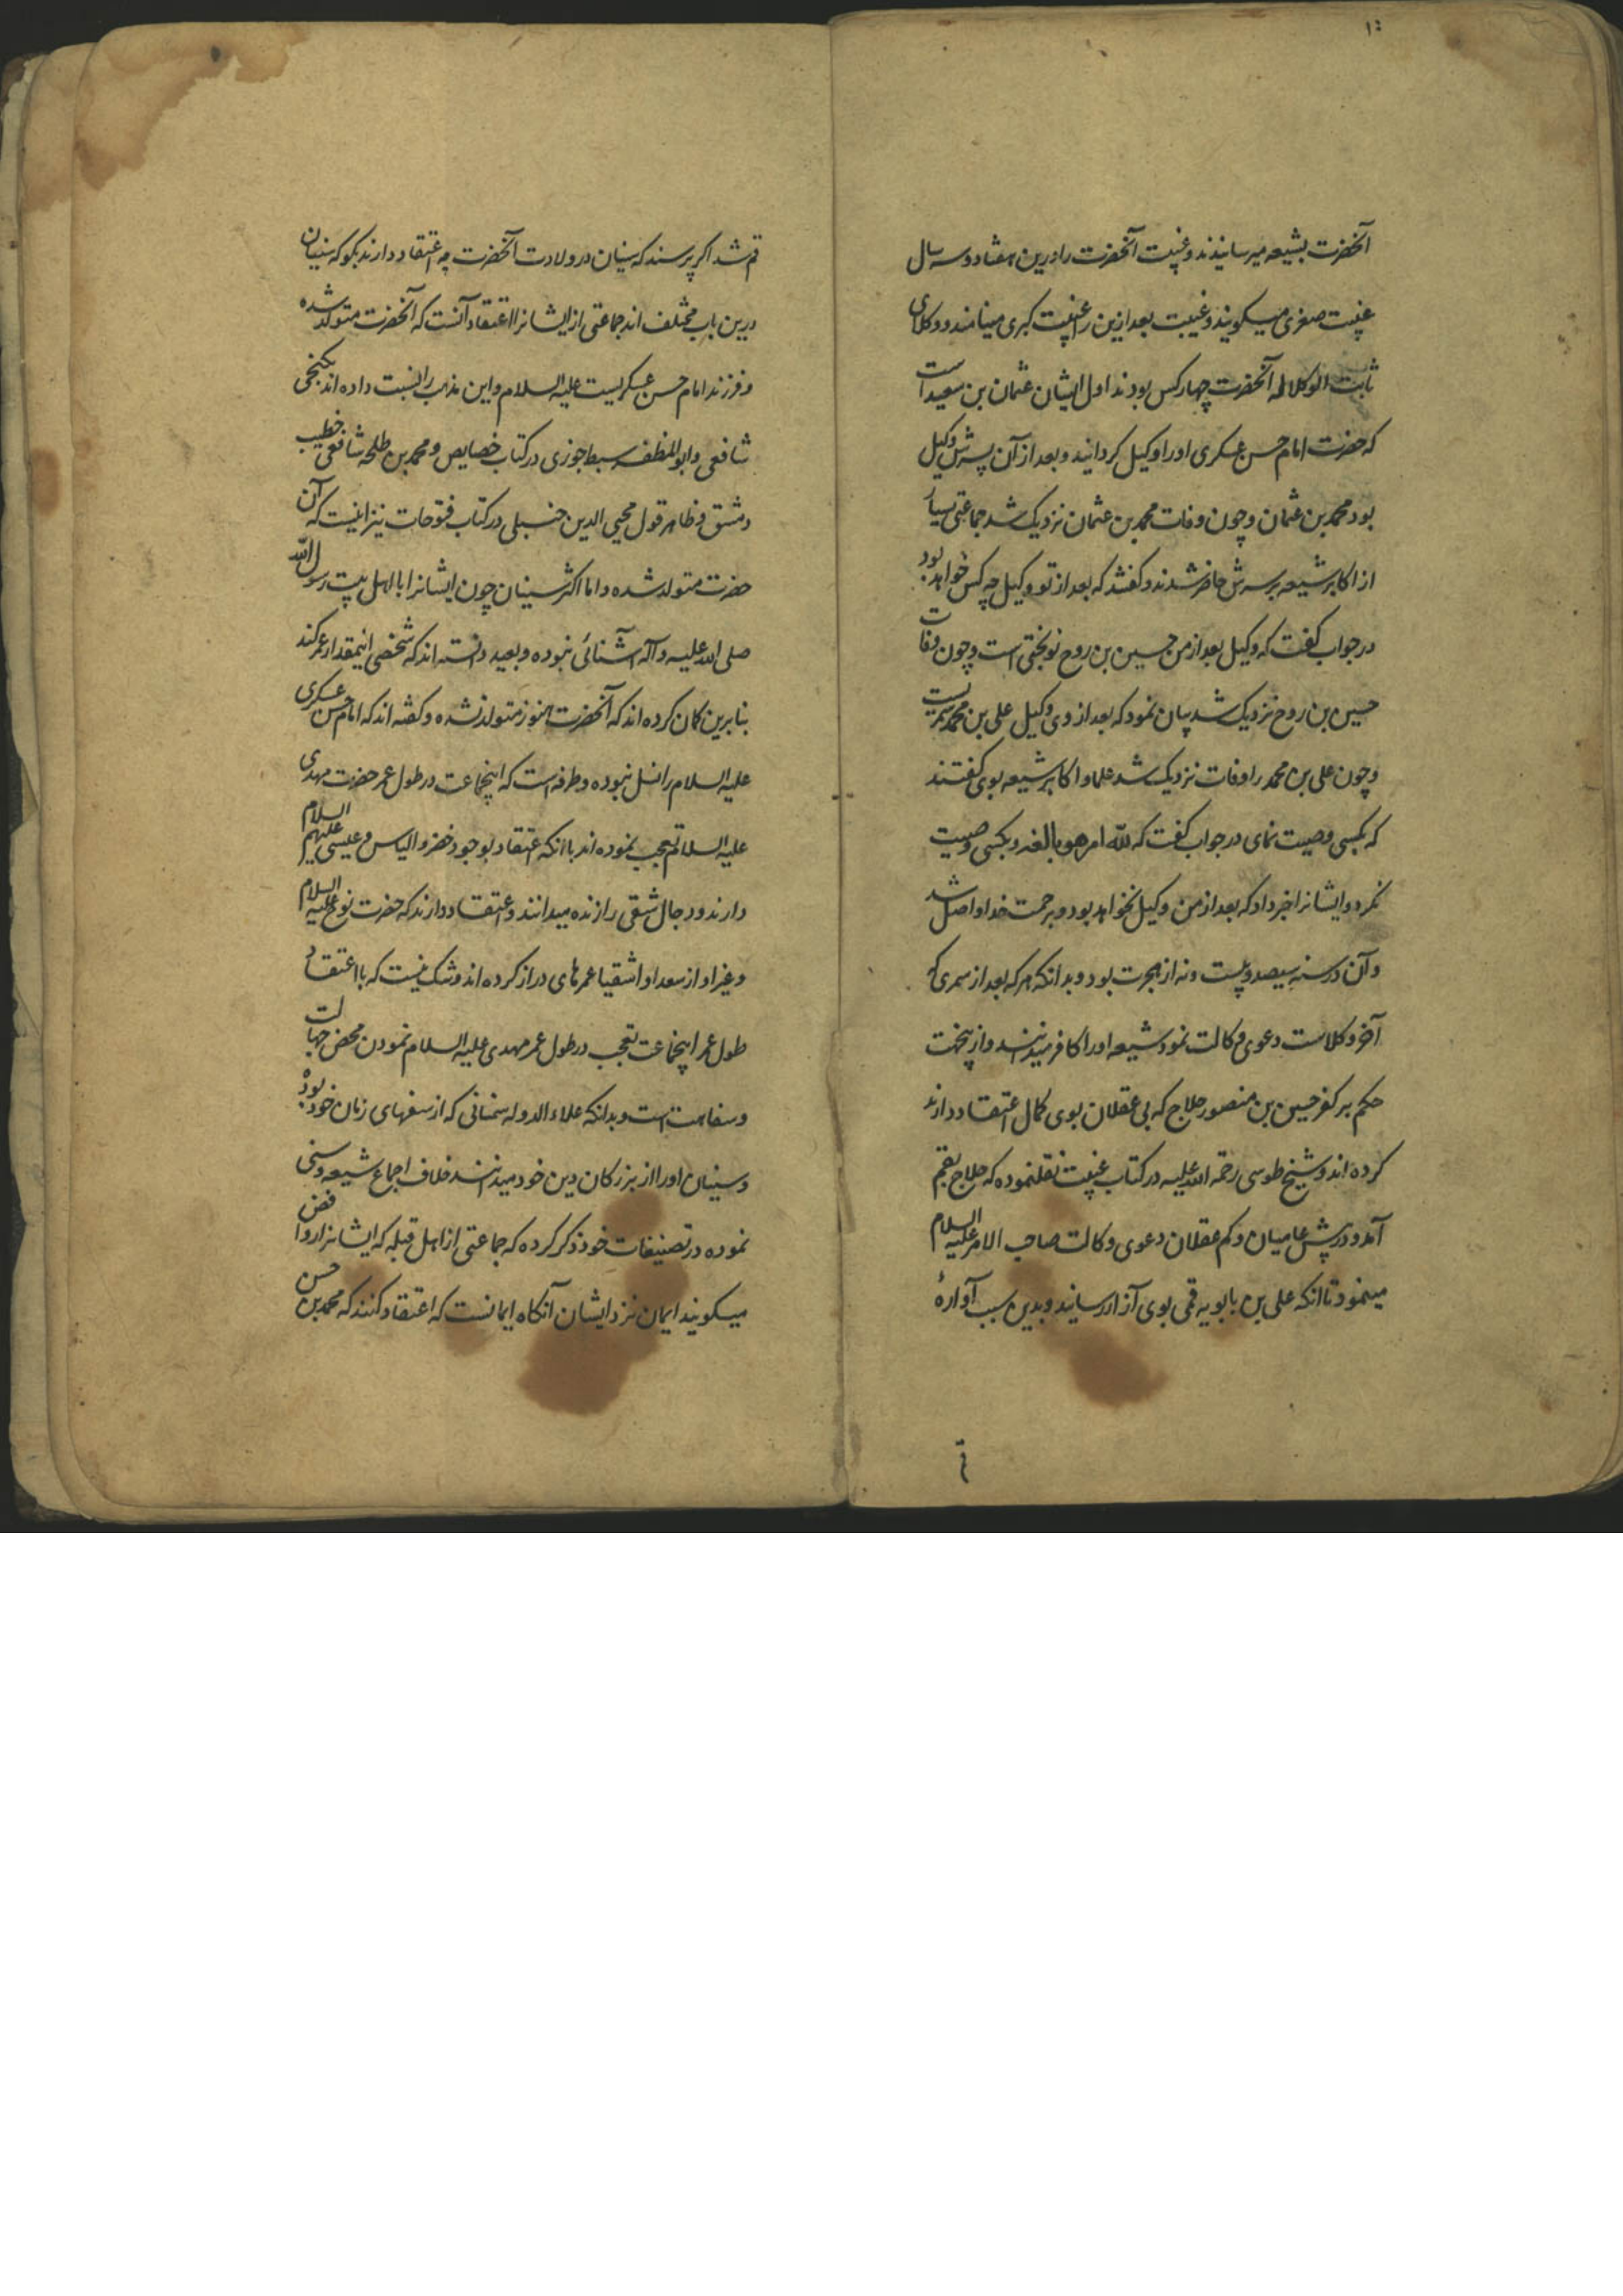 ۱۰
آنحضرت بشیعه میرسانیدند و غیبت آنحضرت را درین هفتاد و سه سال
غیبت صغری میکویند و غیبت بعد ازین را غیبت کبری مینامند و وکلای
ثابت الوکاله آنحضرت چهار کس بودند اول ایشان عثمان بن سعید است
که حضرت امام حسن عسکری او را وکیل کردانید و بعد از آن پسرش وکیل
بود محمد بن عثمان و چون وفات محمد بن عثمان نزدیک شد جماعتی بسیار
از اکابر شیعه بر سرش حاضر شدند و کفتند که بعد از تو وکیل چه کس خواهد بود
در جواب کفت که وکیل بعد از من حسین بن روح نوبختی است و چون وفات
حسین بن روح نزدیک شد بیان نمود که بعد از وی وکیل علی بن محمد سمریست
و چون علی بن محمد را وفات نزدیک شد علما و اکابر شیعه بوی کفتند
که بکسی وصیت نمای در جواب کفت که لله امر هو بالغه و بکسی وصیت
نکرد و ایشانرا خبر داد که بعد از من وکیل نخواهد بود و برحمت خدا واصل شد
و آن در سنه سیصد و بیست و نه از هجرت بود و بدانکه هر که بعد از سمری که
آخر وکلاست دعوی وکالت نمود شیعه او را کافر میدانند و از ینجهت
حکم بر کفر حسین بن منصور حلاج که بی عقلان بوی کمال اعتقاد دارند
کرده اند و شیخ طوسی رحمة الله علیه در کتاب غیبت نقلنموده که حلاج بقم
آمد و در پیش عامیان و کم عقلان دعوی وکالت صاحب الامر علیه السلام
مینمود تا انکه علی بن بابویه قمی بوی آزار رسانید و بدین سبب آواره
قم شد اکر پرسند که سنیان در ولادت آنحضرت چه اعتقاد دارند بکو که سنیان
درین باب مختلف اند جماعتی از ایشانرا اعتقاد آنست که آنحضرت متولد شده
و فرزند امام حسن عسکریست علیه السلام و این مذهب را نسبت داده اند بکنجی
شافعی و ابو المظفر سبط جوزی در کتاب خصایص و محمد بن طلحه شافعی خطیب
دمشق و ظاهر قول محیی الدین حنبلی در کتاب فتوحات نیز اینست که آن
حضرت متولد شده و اما اکثر سنیان چون ایشانرا با اهل بیت رسول الله
صلی الله علیه و آله آشنائی نبوده و بعید دانسته اند که شخصی اینمقدار عمر کند
بنابرین کمان کرده اند که آنحضرت هنوز متولد نشده و کفته اند که امام حسن عسکری
علیه السلام را نسل نبوده و طرفه است که اینجماعت در طول عمر حضرت مهدی
علیه السلام تعجب نموده اند با انکه اعتقاد بوجود خضر و الیاس و عیسی علیهم السلام
دارند و دجال شقی را زنده میدانند و اعتقاد دارند که حضرت نوح علیه السلام
و غیر او از سعدا و اشقیا عمرهای دراز کرده اند و شک نیست که با اعتقاد
طول عمر اینجماعت تعجب در طول عمر مهدی علیه السلام نمودن محض جهالت
و سفاهت است و بدانکه علاء الدوله سمنانی که از سفهای زمان خود بوده
و سنیان او را از بزرکان دین خود میدانند خلاف اجماع شیعه و سنی
نموده در تصنیفات خود ذکر کرده که جماعتی از اهل قبله که ایشانرا روافض
میکویند ایمان نزد ایشان آنکاه ایمانست که اعتقاد کنند که محمد بن حسن